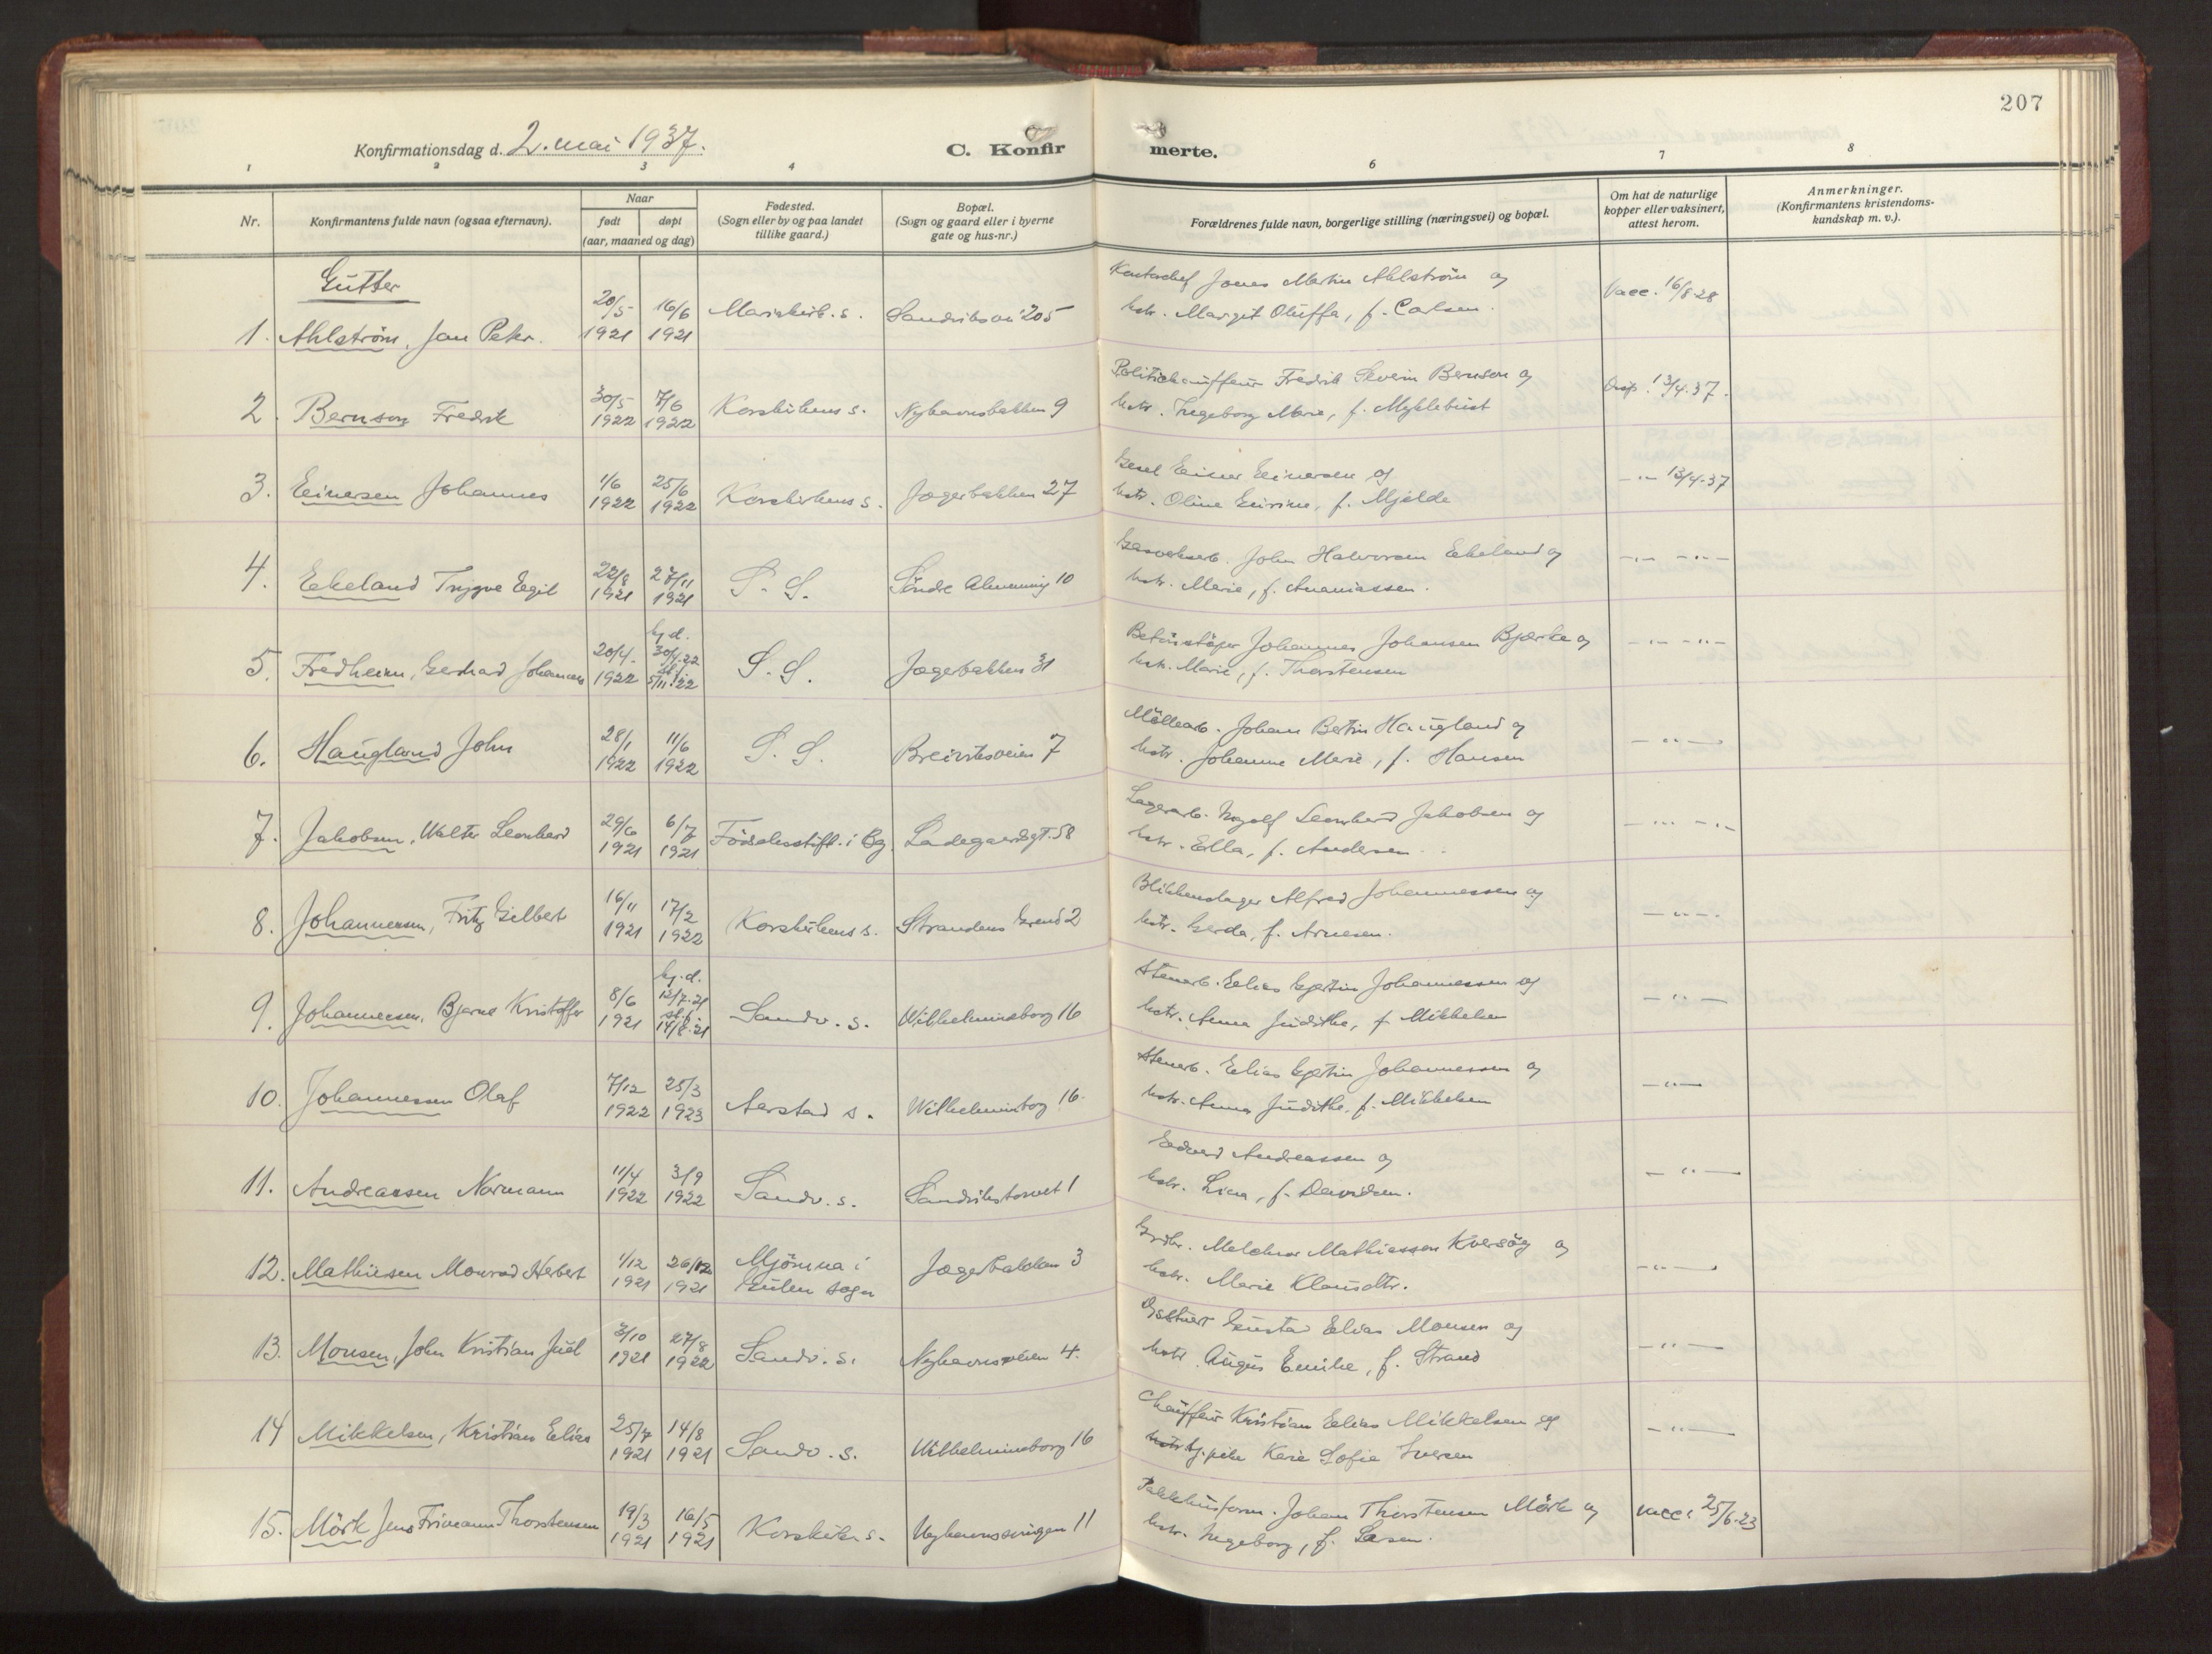 207
Konfirmationsdag d. 2. mai 1937.
C. Konfirmerte.
1 2 3 4 6 7 8
Nr.
Konfirmantens fulde navn (ogsaa efternavn).
Naar
født døpt
(aar, maaned og dag)
Fødested.
(Sogn eller by og paa landet
tillike gaard.)
Bopæl.
(Sogn og gaard eller i byerne
gate og hus-nr.)
Forældrenes fulde navn, borgerlige stilling (næringsvei) og bopæl.
Om hat de naturlige
kopper eller vaksinert,
attest herom.
Anmerkninger.
(Konfirmantens kristendoms-
kundskap m. v.).
Gutter
20/5 16/6 Mariakirk. s. Sandviksvei 205 Jonas Martin Ahlström og Vacc. 16/8-28
1. Ahlström, Jan Peter. 1921 1921 hstr. Margit Oluffa, f. Carlsen.
30/5 7/6 Politichauffeur Fredrik Severin Bernson og 13/4.37.
2. Bernson Fredrik 1922 1922 Korskirkens s. Nyhavnsbakken 9 hstr. Ingeborg Marie, f. Myklebust
1/6 25/6 Einar Einersen og -"- 13/4-37
3. Einersen Johannes 1922 1922 Korskirkens s. Jægerbakken 27 hstr. Oline f. Mjelde
22/8 27/11 Gasverksarb. John Halvorsen Eekeland og -"- -"-
4. Eekeland Trygve Eegil 1921 1921 S. S. Söndre Almenning 10 hstr. Marie, f. Ananiassen.
hj. d.
20/4 30/4.22 Johannes Johansen Bjærke og -"- -"-
5. Fredheim, Gerhard Johannes 1922 st. f. 5/11.22 S. S. Jægerbakken 31 hstr. Marie, f. Thorstensen
28/1 11/6 Möllearb. Johan Bertin Haugland og
6. Haugland John 1922 1922 S. S. Breiviksveien 7 hstr. Johanne Marie, f. Hansen -"-
29/6 6/7 Lagerarb. Ingolf Leonhard Jakobsen og
7. Jakobsen, Walter Leonhard 1921 1921 Födselsstift. i Bg. Ladegaardsgt. 58 hstr. Ella, f. Andersen -"- -"-
16/11 17/2 Blikkenslager Alfred Johannessen og
8. Johannessen, Fritz Gilbert 1921 1922 Korskirkens s. Strandens Grend 2 hstr. Gerda, f. Arnesen. -"-
hj. d.
8/6 12/7.21 Stenarb. Elias Johannessen og
9. Johannessen, Bjarne Kristoffer 1921 st. f. 14/8.21 Sandv. s. Wilhelmineborg 16 hstr. Anna Judithe, f. Mikkelsen -"-
7/12 25/3 Stenarb. Elias Johannessen og
10. Johannessen Olaf 1922 1923 Aarstad s. Wilhelminborg 16. hstr. Anna Judithe, f. Mikkelsen -"-
11/4 3/9 Edvard Andreassen og
11. Andreassen Normann 1922 1922 Sandv. s. Sandvikstorvet 1 hstr. Lina, f. Davidsen. -"-
1/12 26/12 Mjömna i Gbr. Melchior Mathiassen Kversöy og
12. Mathiesen Monrad Herbert 1921 1921 Gulen sogn Jægerbakken 3 hstr. Marie Klausdtr. -"-
3/10 27/8 Gustav Elias Monsen og
13. Monsen, John Kristian Juel 1921 1922 Sandv. s. Nyhavnsveien 4. hstr. Emilie, f. Strand -"-
25/7 14/8 Chauffeur Kristian Eelias Mikkelsen og
14 Mikkelsen, Kristian Eelias 1921 1921 Sandv. s. Wilhelmineborg 16 Kaia Sofie Iversen -"-
19/3 16/5 Pakkhusform. Johan Thorstensen Mörk og vacc. 25/6-23
15. Mörk Jens Frimann Thorstensen 1921 1921 Korskirk. s. Nyhavnssvingen 11 hstr. Ingeborg, f. Larsen.